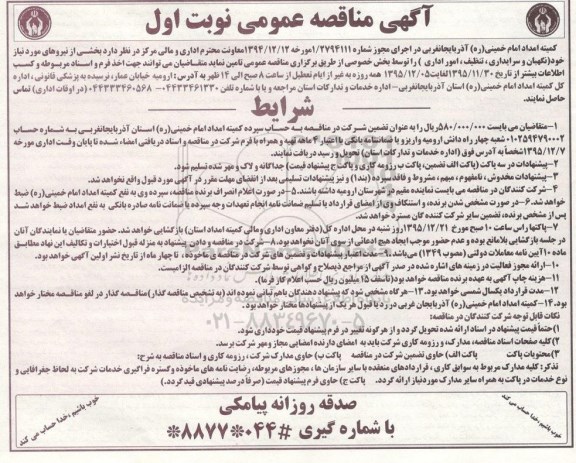 آگهی مناقصه عمومی نوبت اول
کمیته امداد امام خمینی(ره) آذربایجانغربی در اجرای مجوز شماره ۱/۲۷۹۴۱۱۱مورخه ۱۳۹۴/۱۲/۱۲معاونت محترم اداری و مالی مرکز در نظر دارد بخشی از نیروهای مورد نیاز
خود(نگهبان و سرایداری، تنظیف، امور اداری ) را توسط بخش خصوصی از طریق برگزاری مناقصه عمومی تامین نماید متقاضیان می توانند جهت اخذ فرم و اسناد مربوطه و کسب
اطلاعات بیشتر از تاریخ ۱۳۹۵/۱۱/۳۰لغایت۱۳۹۵/۱۲/۰۵ همه روزه به غیر از ایام تعطیل از ساعت ۸ صبح الی ۱۴ ظهر به آدرس: ارومیه خیابان عمار، نرسیده به پزشکی قانونی، اداره
کل کمیته امداد امام خمینی(ره) استان آذربایجانغربی- اداره خدمات و تدارکات استان مراجعه و یا با شماره تلفن ۰۴۴۳۳۴۶۱۳۳۰-۰۴۴۳۳۴۶۰۵۶۸ (در اوقات اداری) تماس
حاصل نمایند.
شرایط
۱-متقاضیان می بایست ۵۸۰/۰۰۰/۰۰۰ریال را به عنوان تضمین شرکت در مناقصه به حساب سپرده کمیته امداد امام خمینی(ره) استان آذربایجانغربی به شماره حساب
۰۱۰۲۵۹۴۷۹۰۰۰۲شعبه چهار راه دانش ارومیه واریز و یا ضمانتنامه بانکی با اعتبار ۴ ماهه تهیه و همراه با فرم شرکت در مناقصه و اسناد دریافتی امضاء شده تا پایان وقت اداری مورخ
۱۳۹۵/۱۲/۷شخصاً به آدرس فوق (اداره خدمات و تدارکات استان) تحویل و رسید دریافت نمایند.
۲-پیشنهادات در سه پاکت (پاکت الف تضمین، پاکت ب رزومه کاری و پاکت ج پیشنهاد قیمت) جداگانه و لاک و مهر شده تسلیم شود.
۳-پیشنهادات مخدوش ، نامفهوم، مبهم، مشروط و فاقد سپرده (بند۱) و نیز پیشنهادات تسلیمی بعد از انقضای مهلت مقرر در آگهی مورد قبول واقع نخواهد شد.
۴-شرکت کنندگان در مناقصه می بایست نماینده مقیم در شهرستان ارومیه داشته باشند.۵-در صورت اعلام انصراف برنده مناقصه، سپرده وی به نفع کمیته امداد امام خمینی(ره) ضبط
خواهد شد.۶-در صورت مشخص شدن برنده، و استنکاف وی از امضای قرارداد یا تسلیم ضمانت نامه انجام تعهدات وجه سپرده یا ضمانت نامه صادره بانکی به نفع امداد ضبط خواهد شد و
پس از مشخص برنده، تضمین سایر شرکت کننده گان مسترد خواهد شد.
۷-پاکتها راس ساعت ۱۰ صبح مورخ ۱۳۹۵/۱۲/۲۱روز شنبه در محل اداره کل(دفتر معاون اداری و مالی کمیته امداد استان) بازگشایی خواهد شد. حضور متقاضیان یا نمایندگان آنان
در جلسه بازگشایی بلامانع بوده و عدم حضور موجب ایجاد هیچ ادعائی از سوی آنان نخواهد بود.۸-شرکت در مناقصه و دادن پیشنهاد به منزله قبول اختیارات و تکالیف این نهاد مطابق
ماده ۱۰آیین نامه معاملات دولتی (مصوب ۱۳۴۹) می‌باشد.۹-مدت اعتبار پیشنهادات و تضمین های شرکت در مناقصه ماخوذه ، تا چهار ماه از تاریخ نشر اولین آگهی خواهد بود.
۱۰-ارائه مجوز فعالیت در زمینه های اشاره شده در صدر آگهی از مراجع ذیصلاح و گواهی توسط شرکت کنندگان در مناقصه الزامیست.
۱۱-هزینه چاپ آگهی به عهده برنده مناقصه خواهد بود(تاسقف ۱۵میلیون ریال حسب اعلام کارفرما).
۱۲-مدت قرارداد یکسال شمسی خواهد بود.۱۳-هرگاه مشخص شود که پیشنهاد دهندگان باهم تبانی نموده اند (به تشخیص مناقصه گذار) مناقصه گذار در لغو مناقصه مختار خواهد
بود.۱۴-کمیته امداد امام خمینی(ره) آذربایجان غربی در رد یا قبول هر یک از پیشنهادها مختار خواهد بود.
نکات قابل توجه شرکت کنندگان در مناقصه:
۱)حتماً قیمت پیشنهاد در اسناد ارائه شده تحویل گردد و از هرگونه تغییر در فرم پیشنهاد قیمت خودداری شود.
۲)کلیه صفحات اسناد مناقصه، مدارک، و رزومه کاری شرکت باید به امضای دارنده امضایی مجاز و مهر شرکت برسد.
۳)محتویات پاکت پاکت الف) حاوی تضمین شرکت در مناقصه پاکت ب) حاوی مدارک شرکت ، رزومه کاری و اسناد مناقصه به شرح:
تذکر: کلیه مدارک مربوط به سوابق کاری ، قراردادهای منعقده با سایر سازمان ها ، مجوزهای مربوطه، رضایت نامه های ماخوذه و گستره فراگیری خدمات شرکت به لحاظ جغرافیایی و
نوع خدمات در پاکت به همراه سایر مدارک مورد نیاز ارائه گردد. پاکت ج) حاوی فرم پیشنهاد قیمت (صرفاً درصد پیشنهادی قید گردد.)
۰۲۱-۸۸۳۴۹۶۷۰-۵
صدقه روزانه پیامکی
با شماره گیری #۰۴۴*۸۸۷۷*
خوب باشیم، خدا حساب می کند
خوب باشیم، خدا حساب می کند